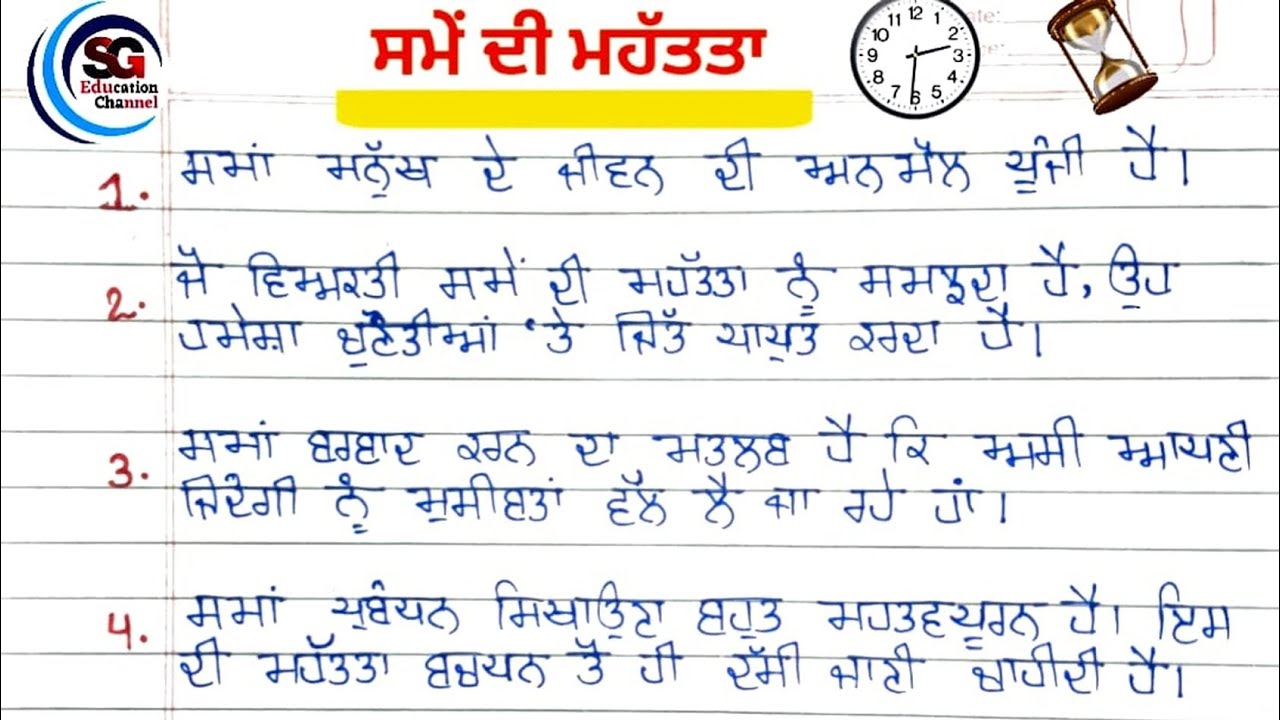 SG
Education
Channel
ਸਮੇਂ ਦੀ ਮਹੱਤਤਾ
1. ਸਮਾਂ ਮਨੁੱਖ ਦੇ ਜੀਵਨ ਦੀ ਅਨਮੋਲ ਪੂੰਜੀ ਹੈ।
2. ਜੋ ਵਿਅਕਤੀ ਸਮੇਂ ਦੀ ਮਹੱਤਤਾ ਨੂੰ ਸਮਝਦਾ ਹੈ, ਉਹ
ਹਮੇਸ਼ਾ ਚੁਣੌਤੀਆਂ 'ਤੇ ਜਿੱਤ ਪਾਪ੍ਰਤ ਕਰਦਾ ਹੈ।
3. ਸਮਾਂ ਬਰਬਾਦ ਕਰਨ ਦਾ ਮਤਲਬ ਹੈ ਕਿ ਅਸੀ ਆਪਣੀ
ਜਿੰਦਗੀ ਨੂੰ ਮੁਸੀਬਤਾਂ ਵੱਲ ਲੈ ਜਾ ਰਹੇ ਹਾਂ।
4. ਸਮਾਂ ਪ੍ਰਬੰਧਨ ਸਿਖਾਉਣਾ ਬਹੁਤ ਮਹਤਵਪੂਰਨ ਹੈ। ਇਸ
ਦੀ ਮਹੱਤਤਾ ਬਚਪਨ ਤੋਂ ਹੀ ਦੱਸੀ ਜਾਣੀ ਚਾਹੀਦੀ ਹੈ।